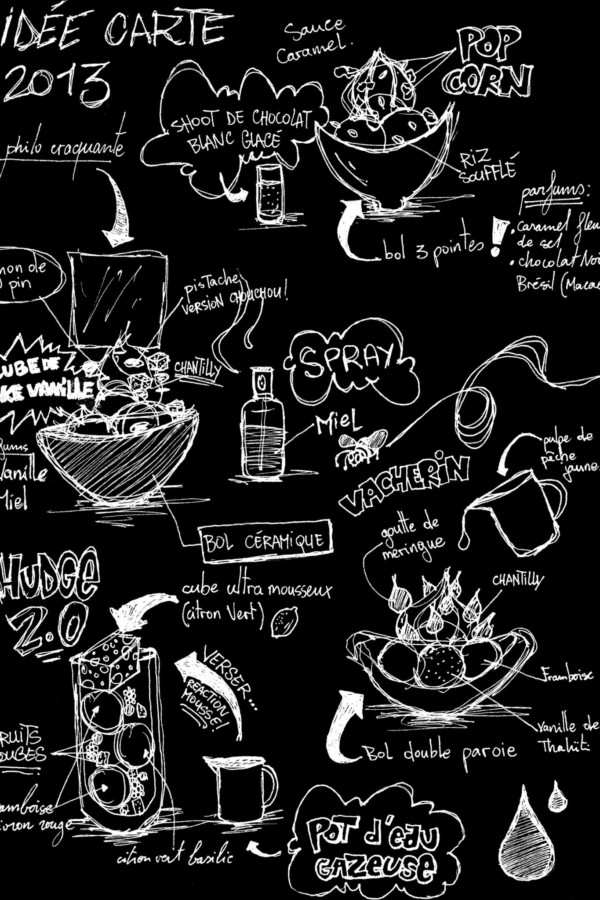 IDÉE CARTE
2013
Sauce
Caramel.
POP
CORN
SHOOT DE CHOCOLAT
BLANC GLACÉ
philo craquante
RIZ
SOUFFLÉ
parfums:
bol 3 pointes !
caramel fleu
de sel
chocolat Noi
Brésil (Macaé
non de
pin
pistache
VERSION CHOUCHOU!
CHANTILLY
CUBE DE
KE VANILLE
SPRAY
Miel
Vanille
Miel
VACHERIN
pulpe de
pêche
jaune
BOL CÉRAMIQUE
goutte de
meringue
CHANTILLY
HUDGE
2.0
cube ultra mousseux
(citron Vert)
VERSER...
RÉACTION
MOUSSE!
Framboise
vanille de
Thahiti
Bol double paroie
RUITS
OUGES
amboise
oivron rouge
citron vert basilic
POT d'eau
GAZEUSE